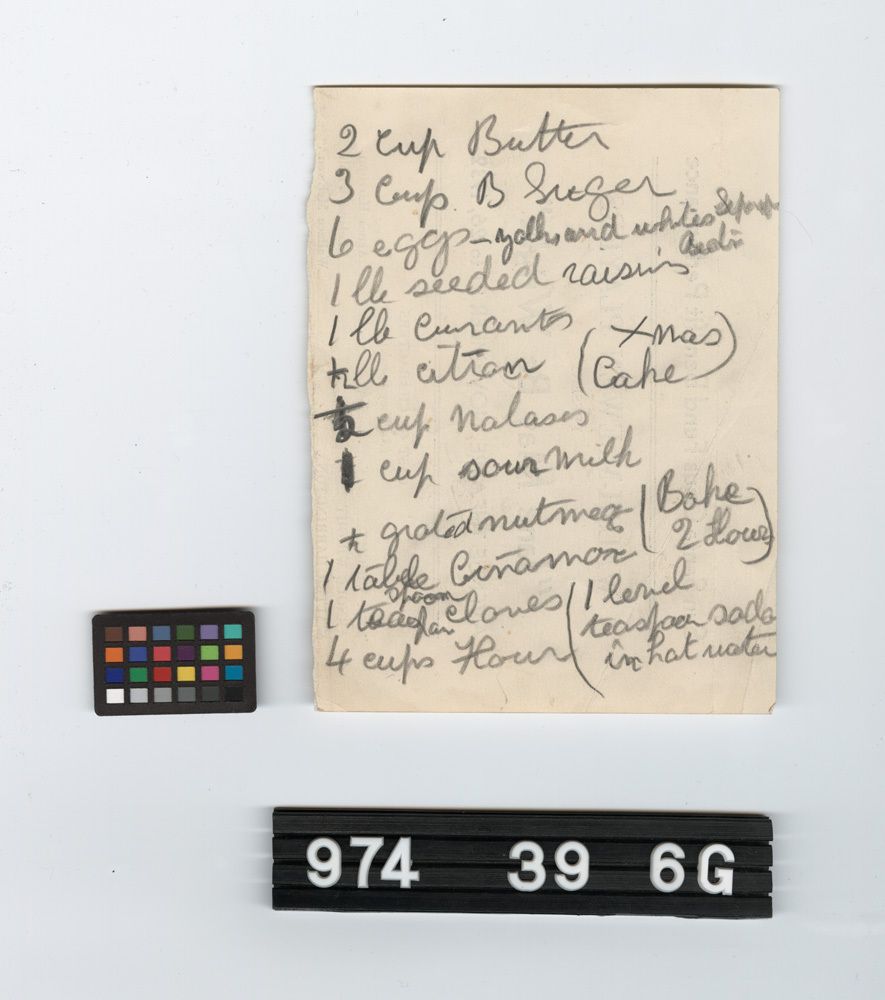 2 cup Butter
3 Cup B Suger
6 eggs – yolks and whites
1 lb seeded raisins
1 lb Currants
(Xmas Cake)
½ lb citron
½ cup Malases
1 cup sour milk
½ grated nutmeg
(Bake 2 Hours)
1 table spoon Cinamon
1 teaspoon cloves
4 cups Flour
(1 level
teaspoon soda
in hot water
974 39 6G